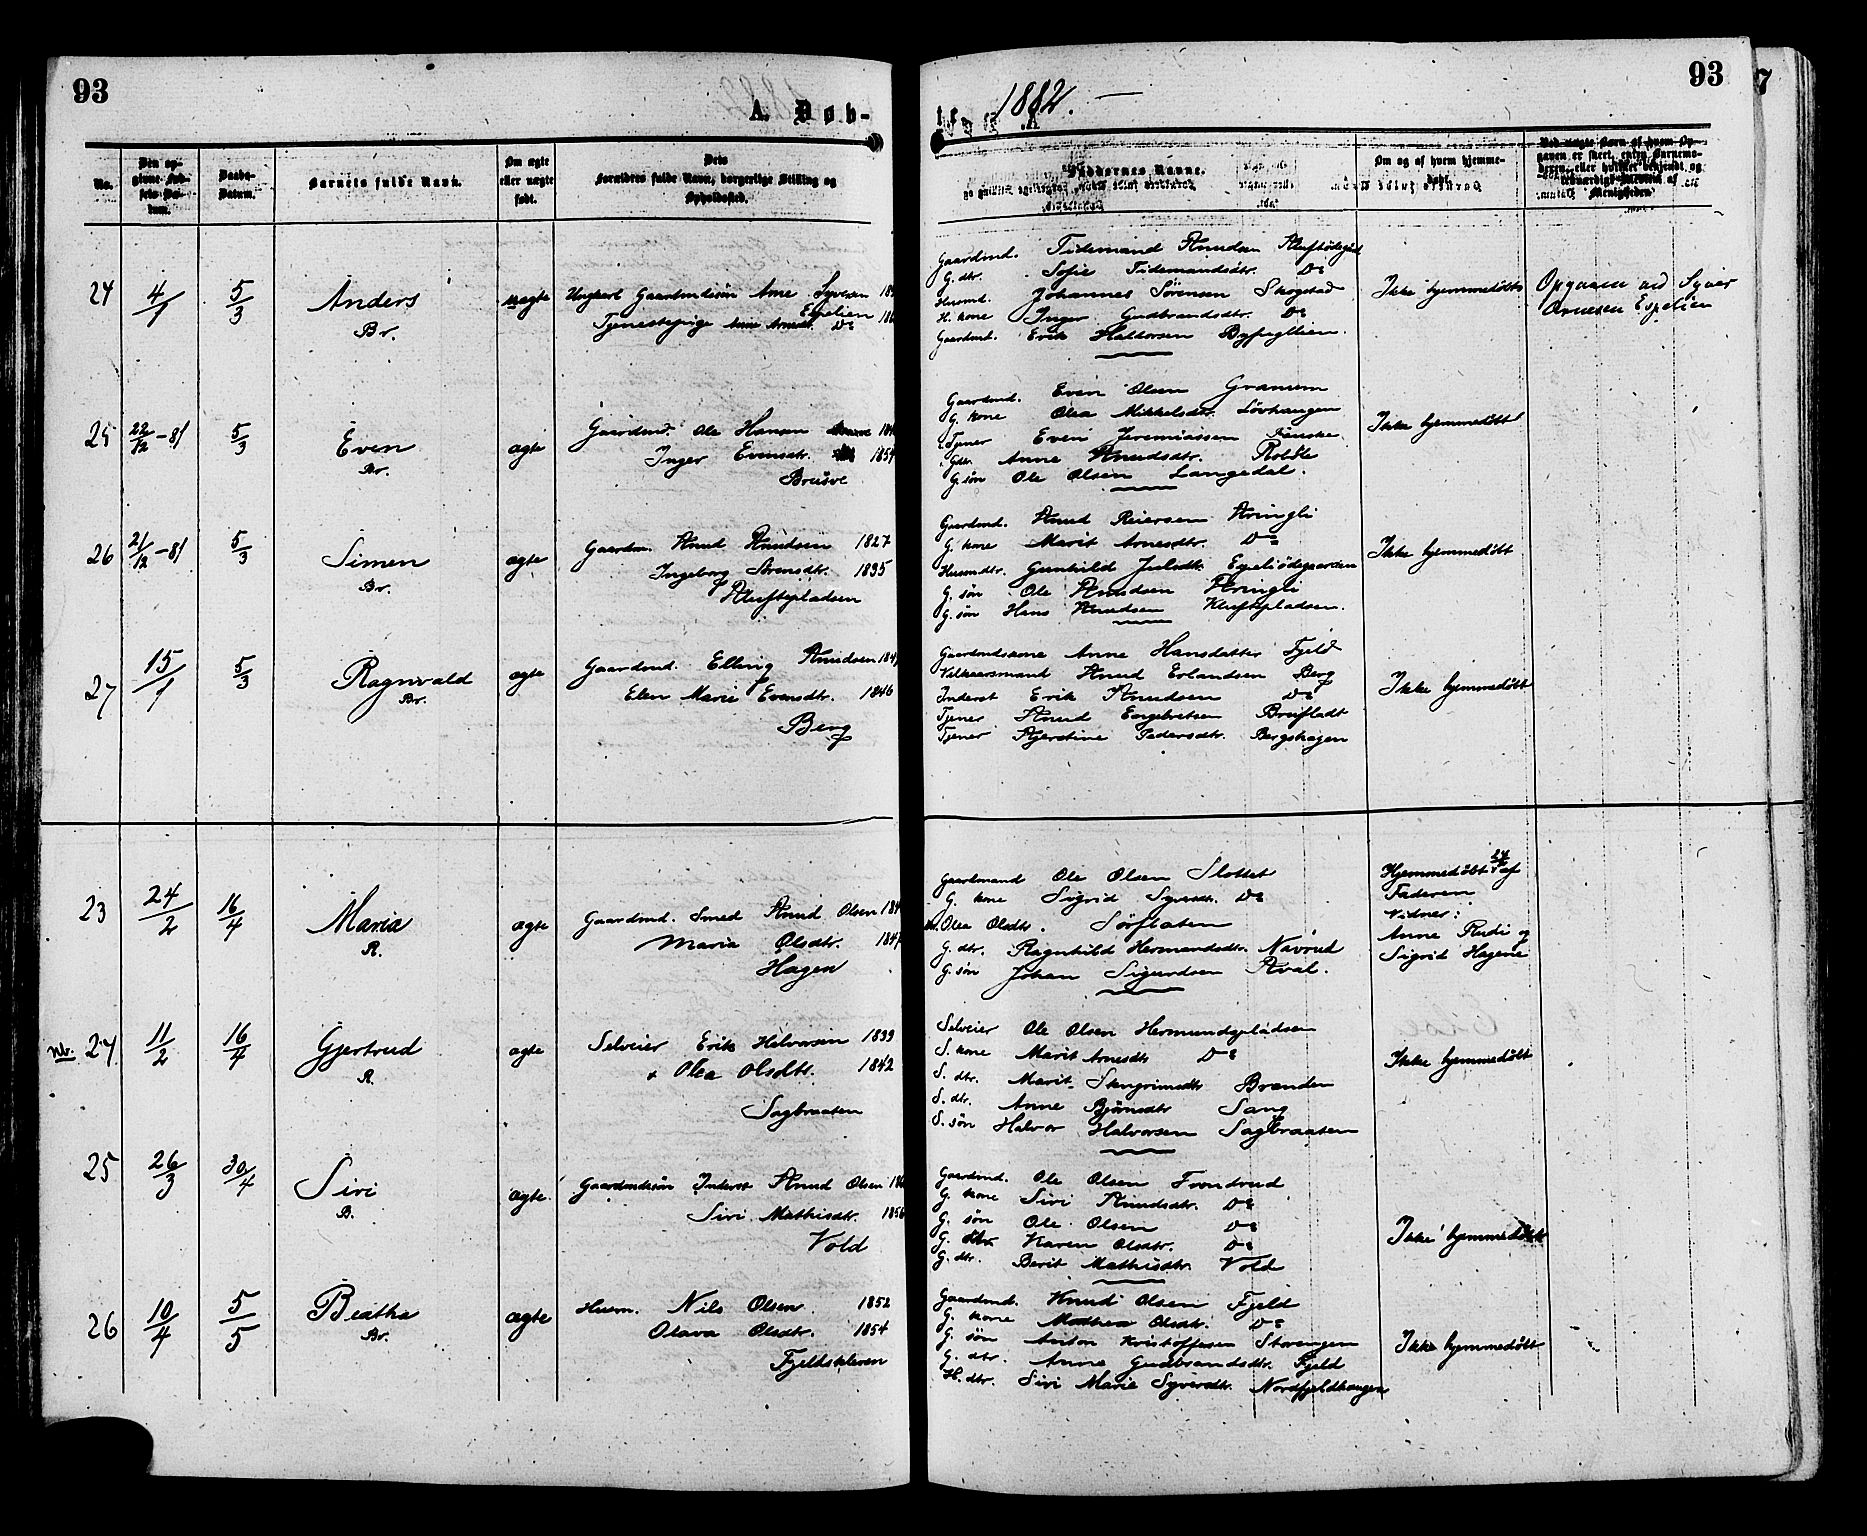 93
A. Døb-
1882.
93
No.
Barnets fulde Navn.
Daabs-
Datum.
Om ægte
eller uægte
født.
Forældres fulde Navn, borgerlige Stilling og
Opholdssted.
Faddernes Navne.
Om og af hvem hjemme-
døbt.
24 4/1 5/3 Anders uægte
Br.
Ungkarl Gaardmdssøn Arne Syversen
Espelien
Tjenestepige Anne Arnesdt. Do
Gaardmd. Tidemand Knudsen
G. dtr. Sofie Tidemandsdtr. Do
Husmd. Johannes Sørensen Skogstad
H. kone Inger Gudbrandsdtr. Do
Gaardmd. Erik Haldorsen
Ikke hjemmedøbt
Opgaven ved Syver
Arnesen Espelien
25 22/12-81 5/3 Even ægte
Br.
Gaardmd. Ole Hansen
Inger Evensdtr. 1854
Gaardmd. Even Olsen Granum
G. kone Olea Mikkelsdtr. Løvhaugen
Tjener Even Jeremiassen
Anne Knudsdtr.
G. søn Ole Olsen Langedal.
Ikke hjemmedøbt
26 21/12-81 5/3 Simen ægte
Br.
Gaardm. Knud Knudsen 1827
Ingeborg 1835
Kluftepladsen
Gaardmd. Knud Reiersen Kringli
G. kone Marit Arnesdtr. Do
Husmdtr. Gunhild Julsdt. Espeliødegaarden
G. søn Ole Knudsen Kringli
G. søn Hans Knudsen Kluftepladsen.
Ikke hjemmedøbt
27 15/1 5/3 Ragnvald ægte
Br.
Gaardmd. Elling Knudsen
Elen Marie Evensdtr. 1846
Berg
Gaardmdskone Anne Hansdatter Fjeld
Vilkaarsmand Knud Erlandsen Berg
Inderst Erik Knudsen Do
Tjener Knud Engebretsen Breifladt
Tjener Kjerstine Pedersdtr. Bergshagen
Ikke hjemmedøbt
23 24/2 16/4 Maria ægte
R.
Gaardmd. Smed Knud Olsen
Maria Olsdtr. 1847
Hagen
Gaardmand Ole Olsen Slottet
G. kone Sigrid Syversdtr. Do
Olea Olsdtr. Sørflaten
G. dtr. Ragnhild Hermandsdtr. Navrud
G. søn Johan Sigurdsen Kval.
Hjemmedøbt af
Faderen
Vidner:
Anne Rudi og
Sigrid Hagene
nb. 24 11/2 16/4 Gjertrud ægte
R.
Selveier Erik Halvorsen 1839
Olea Olsdtr. 1842
Sagbraaten
Selveier Ole Olsen Hermundspladsen
S. kone Marit Arnesdtr Do
S. dtr. Marit Brenden
S. dtr. Anne Bjørnsdtr Sang
S. søn Halvor Halvorsen Sagbraaten
Ikke hjemmedøbt
25 26/3 30/4 Siri ægte.
B.
Gaardmdssøn Inderst Knud Olsen
Siri Mathisdtr. 1856
Vold
Gaardmd. Ole Olsen
G. kone Siri Knudsdtr. Do
G. søn Ole Olsen Do
G. dtr Karen Olsdtr. Do
G. dtr. Berit Mathisdtr. Vold
Ikke hjemmedøbt
26 10/4 5/5 Beathe ægte
Br.
Husm. Nils Olsen 1852
Olava Olsdtr. 1854
Fjeldskleven
Gaardmd. Knud Olsen Fjeld
G. kone Mathea Olsdtr. Do
G. søn Anton Kristoffesen Storengen
G. dtr. Anne Gudbrandsdtr. Fjeld
H. dtr. Siri Marie Syversdtr. Nordfjeldhaugen
Ikke hjemmedøbt